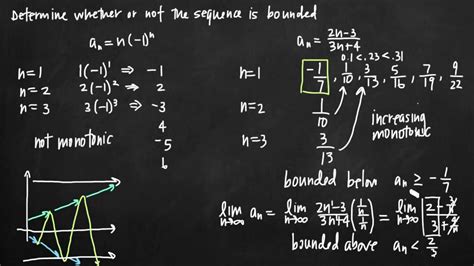 Determine whether or not the sequence is bounded
aₙ = n(-1)ⁿ
n=1 1(-1)¹ ⇒ -1
n=2 2(-1)² → 2
n=3 3(-1)³ ⇒ -3
4
-5
6
not monotonic
aₙ = 2n-3/3n+4
0.1 < .23 < .31
n=1 -1/7, 1/10, 3/13, 5/16, 7/19, 9/22
n=2 1/10
n=3 3/13
increasing
monotonic
bounded below aₙ ≥ -1/7
lim n→∞ aₙ = lim n→∞ 2n-3/3n+4 (1/n / 1/n) = lim n→∞ 2-3/n / 3+4/n
bounded above aₙ < 2/3